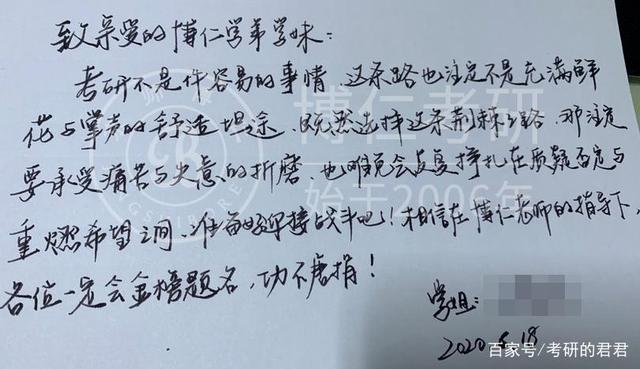 致亲爱的博仁学弟学妹：
考研不是件容易的事情，这条路也注定不是充满鲜
花与掌声的舒适坦途，既然选择这条荆棘之路，那注定
要承受痛苦与失意的折磨，也难免会反复挣扎在质疑否定与
重燃希望之间，准备好迎接战斗吧！相信在博仁老师的指导下，
各位一定会金榜题名，功不唐捐！
学姐：
2020.6.18
博仁考研
始于2006年
百家号/考研的君君